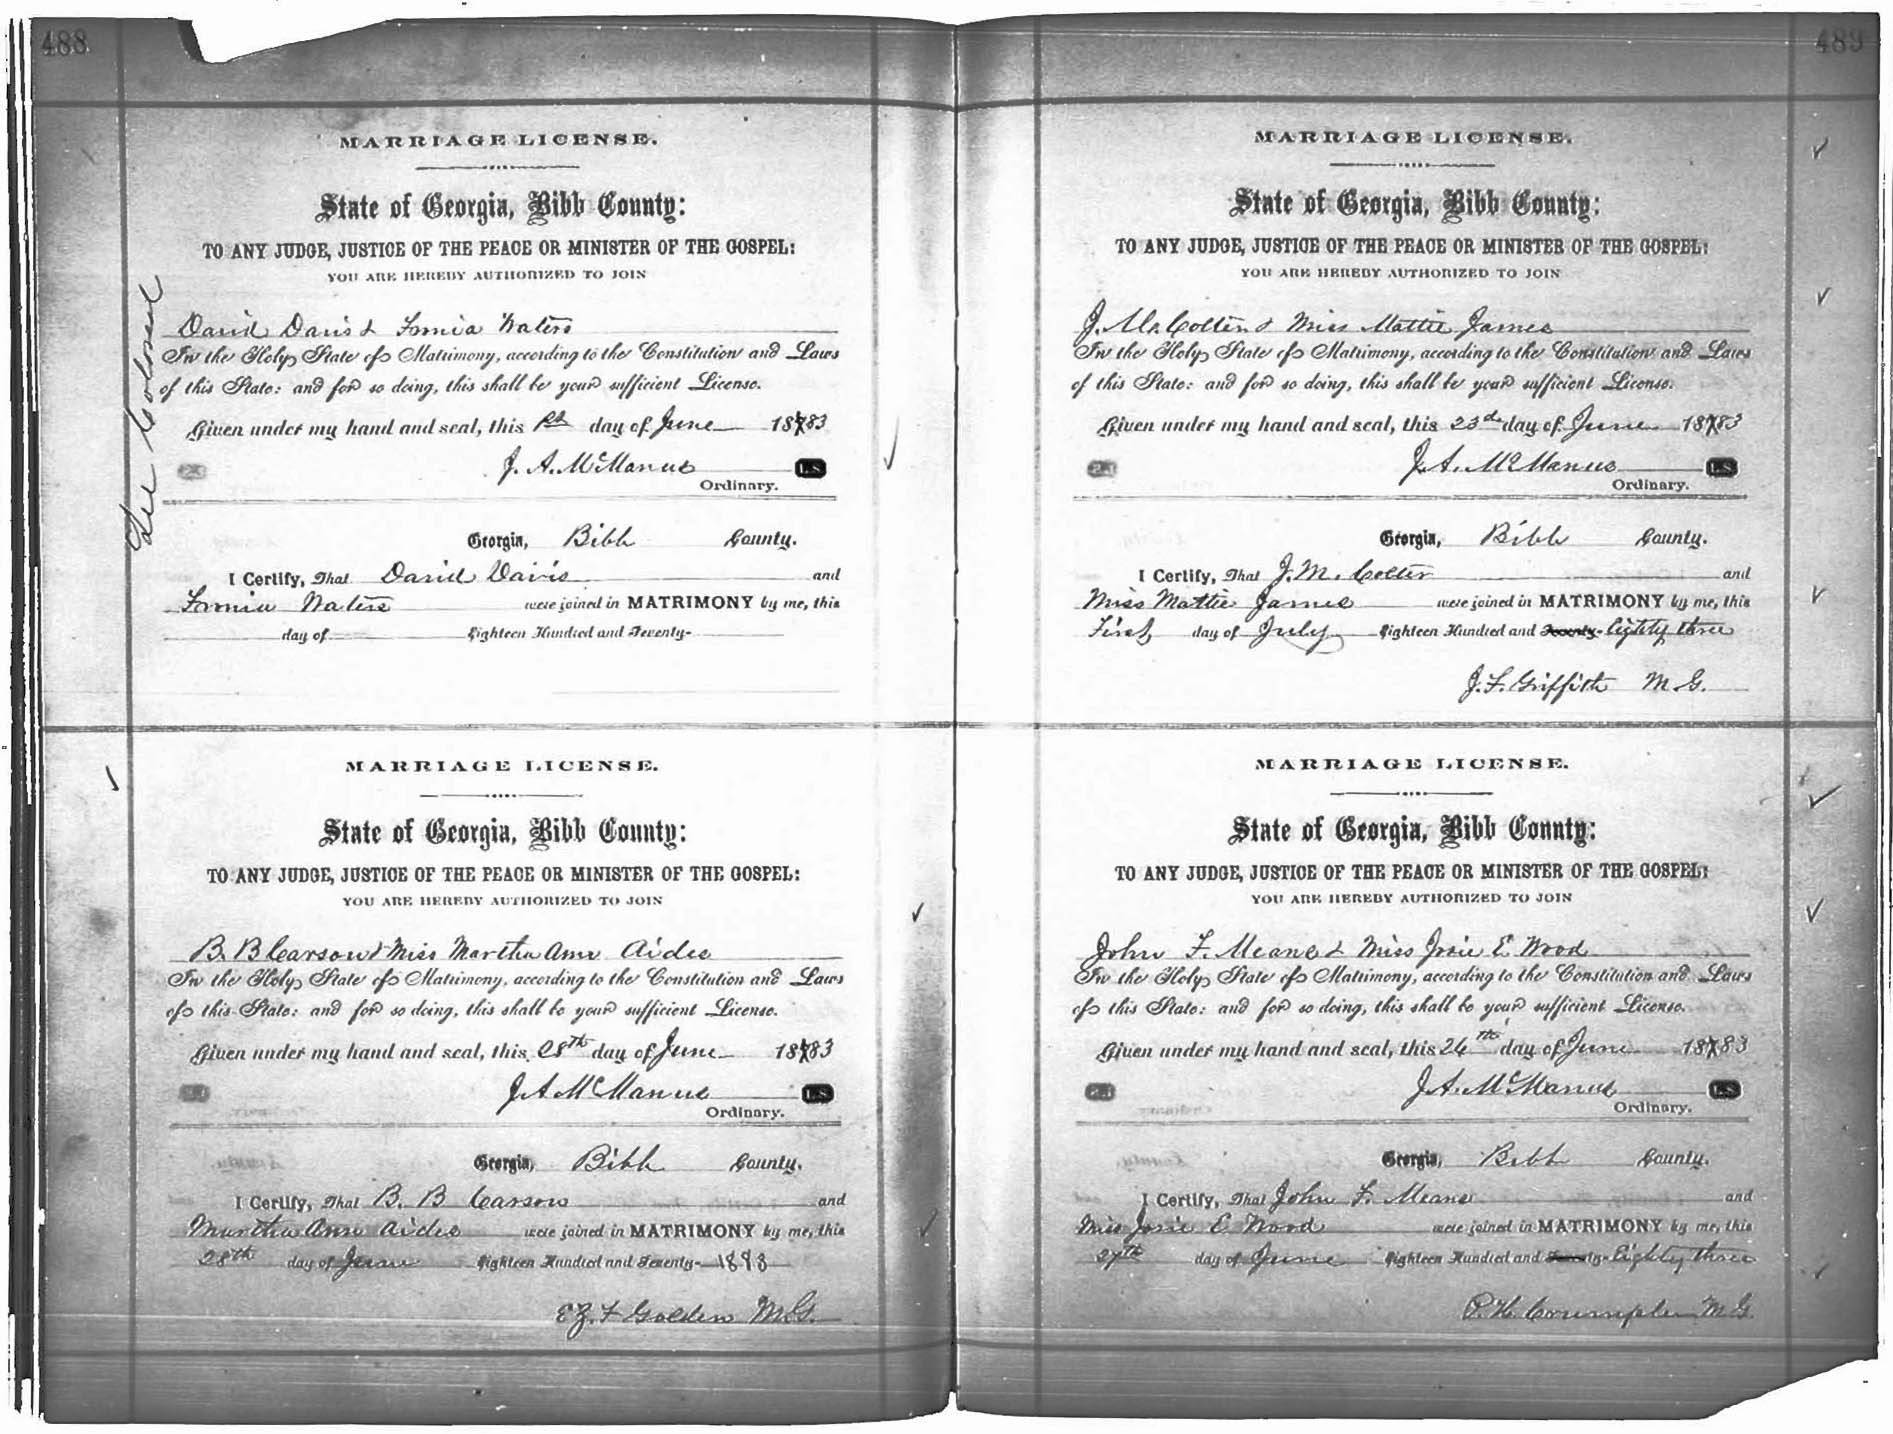 488
MARRIAGE LICENSE.
State of Georgia, Bibb County:
TO ANY JUDGE, JUSTICE OF THE PEACE OR MINISTER OF THE GOSPEL:
YOU ARE HEREBY AUTHORIZED TO JOIN
David Davis & Waters
In the Holy State of Matrimony, according to the Constitution and Laws
of this State: and for so doing, this shall be your sufficient License.
Given under my hand and seal, this day of June 1883
J. A. McManus L.S.
Ordinary.
See Colored
Georgia, Bibb County.
I Certify, That David Davis and
Waters were joined in MATRIMONY by me, this
day of Eighteen Hundred and Seventy-
MARRIAGE LICENSE.
State of Georgia, Bibb County:
TO ANY JUDGE, JUSTICE OF THE PEACE OR MINISTER OF THE GOSPEL:
YOU ARE HEREBY AUTHORIZED TO JOIN
B. B Carson & Miss Martha Ann Aides
In the Holy State of Matrimony, according to the Constitution and Laws
of this State: and for so doing, this shall be your sufficient License.
Given under my hand and seal, this 28th day of June 1883
J. A McManus L.S.
Ordinary.
Georgia, Bibb County.
I Certify, That B. B Carson and
Martha Ann Aides were joined in MATRIMONY by me, this
28th day of June Eighteen Hundred and Seventy- 1883
E Z. F Golden M.G.
489
MARRIAGE LICENSE.
State of Georgia, Bibb County:
TO ANY JUDGE, JUSTICE OF THE PEACE OR MINISTER OF THE GOSPEL:
YOU ARE HEREBY AUTHORIZED TO JOIN
J. M. Colter & Miss Mattie James
In the Holy State of Matrimony, according to the Constitution and Laws
of this State: and for so doing, this shall be your sufficient License.
Given under my hand and seal, this 23d day of June 1883
J. A. McManus L.S.
Ordinary.
Georgia, Bibb County.
I Certify, That J. M. Colter and
Miss Mattie James were joined in MATRIMONY by me, this
First day of July Eighteen Hundred and Seventy- Eighty three
J. F. Griffith M. G.
MARRIAGE LICENSE.
State of Georgia, Bibb County:
TO ANY JUDGE, JUSTICE OF THE PEACE OR MINISTER OF THE GOSPEL:
YOU ARE HEREBY AUTHORIZED TO JOIN
John F. Means & Miss Josie E Wood
In the Holy State of Matrimony, according to the Constitution and Laws
of this State: and for so doing, this shall be your sufficient License.
Given under my hand and seal, this 26th day of June 1883
J. A. McManus L.S.
Ordinary.
Georgia, Bibb County.
I Certify, That John F. Means and
Miss Josie E Wood were joined in MATRIMONY by me, this
27th day of June Eighteen Hundred and Seventy- Eighty three
P. H. Crumpler M G.